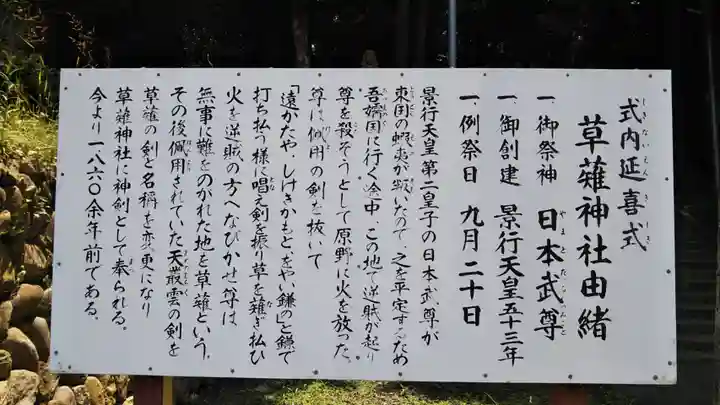 式内延喜式
草薙神社由緒
一、御祭神 日本武尊
一、御創建 景行天皇五十三年
一、例祭日 九月二十日
景行天皇第二皇子の日本武尊が
東国の蝦夷が叛いたので之を平定するため
吾嬬国に行く途中、この地で逆賊が起り
尊を殺そうとして原野に火を放った。
尊は佩用の剣を抜いて
「遠かたや、しげきかもとをやい鎌の」と鎌で
打ち払う様に唱え剣を振り草を薙ぎ払ひ
火を逆賊の方へなびかせ尊は
無事に難をのがれた地を草薙という。
その後佩用されていた天叢雲の剣を
草薙の剣と名称を変更になり
草薙神社に神剣として奉られる。
今より一八六〇余年前である。